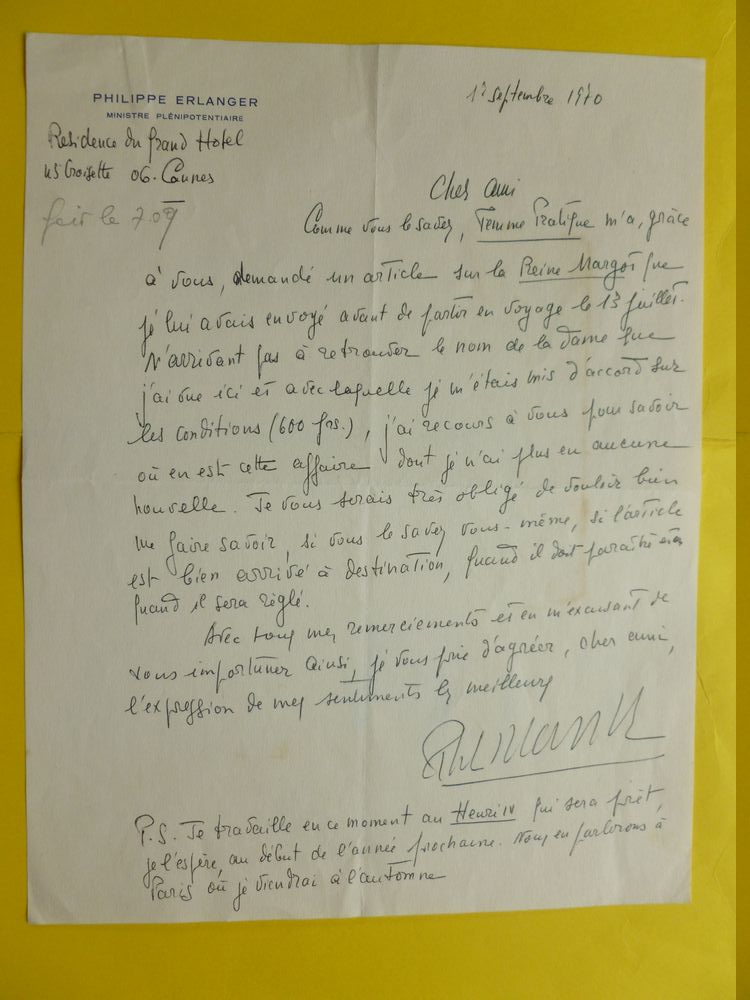 PHILIPPE ERLANGER
MINISTRE PLÉNIPOTENTIAIRE
Residence du Grand Hotel
45 Croisette 06. Cannes
12 septembre 1970
Cher ami
Comme vous le savez, Femme Pratique m'a, grâce
à vous, demandé un article sur la Reine Margot que
je lui avais envoyé avant de partir en voyage le 13 juillet.
N'arrivant pas à retrouver le nom de la dame que
j'ai vue ici et avec laquelle je m'étais mis d'accord sur
les conditions (600 frs.), j'ai recours à vous pour savoir
où en est cette affaire dont je n'ai plus eu aucune
nouvelle. Je vous serais très obligé de vouloir bien
me faire savoir, si vous le savez vous-même, si l'article
est bien arrivé à destination, quand il doit paraître et
quand il sera réglé.
Avec tous mes remerciements et en m'excusant de
vous importuner ainsi, je vous prie d'agréer, cher ami,
l'expression de mes sentiments les meilleurs
P.S. Je travaille en ce moment au Henri IV qui sera prêt,
je l'espère, au début de l'année prochaine. Nous en parlerons à
Paris où je viendrai à l'automne